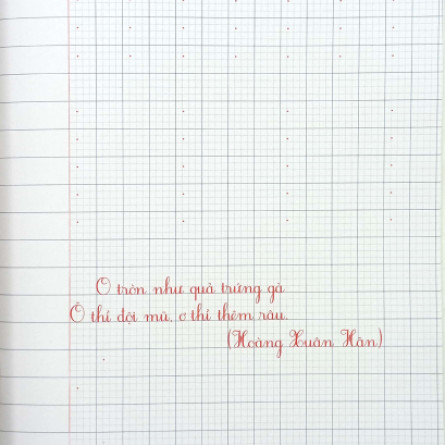 O tròn như quả trứng gà
Ô thì đội mũ, ơ thì thêm râu.
(Hoàng Xuân Hãn)